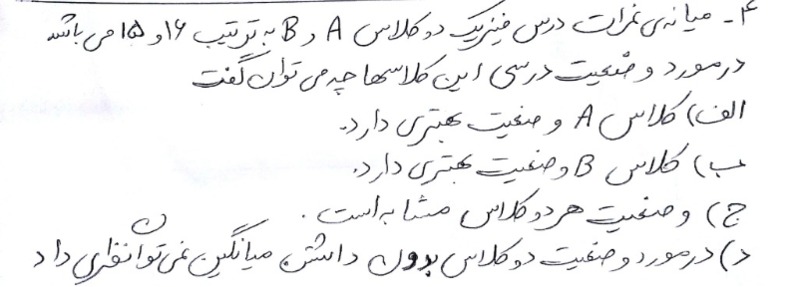 ۴- میانه‌ی نمرات درس فیزیک دو کلاس A و B به ترتیب ۱۶ و ۱۵ می باشد
در مورد وضعیت درسی این کلاسها چه می توان گفت
الف) کلاس A وضعیت بهتری دارد.
ب) کلاس B وضعیت بهتری دارد.
ج) وضعیت هر دو کلاس مشابه است.
د) در مورد وضعیت دو کلاس بدون داشتن میانگین نمی توان نظری داد